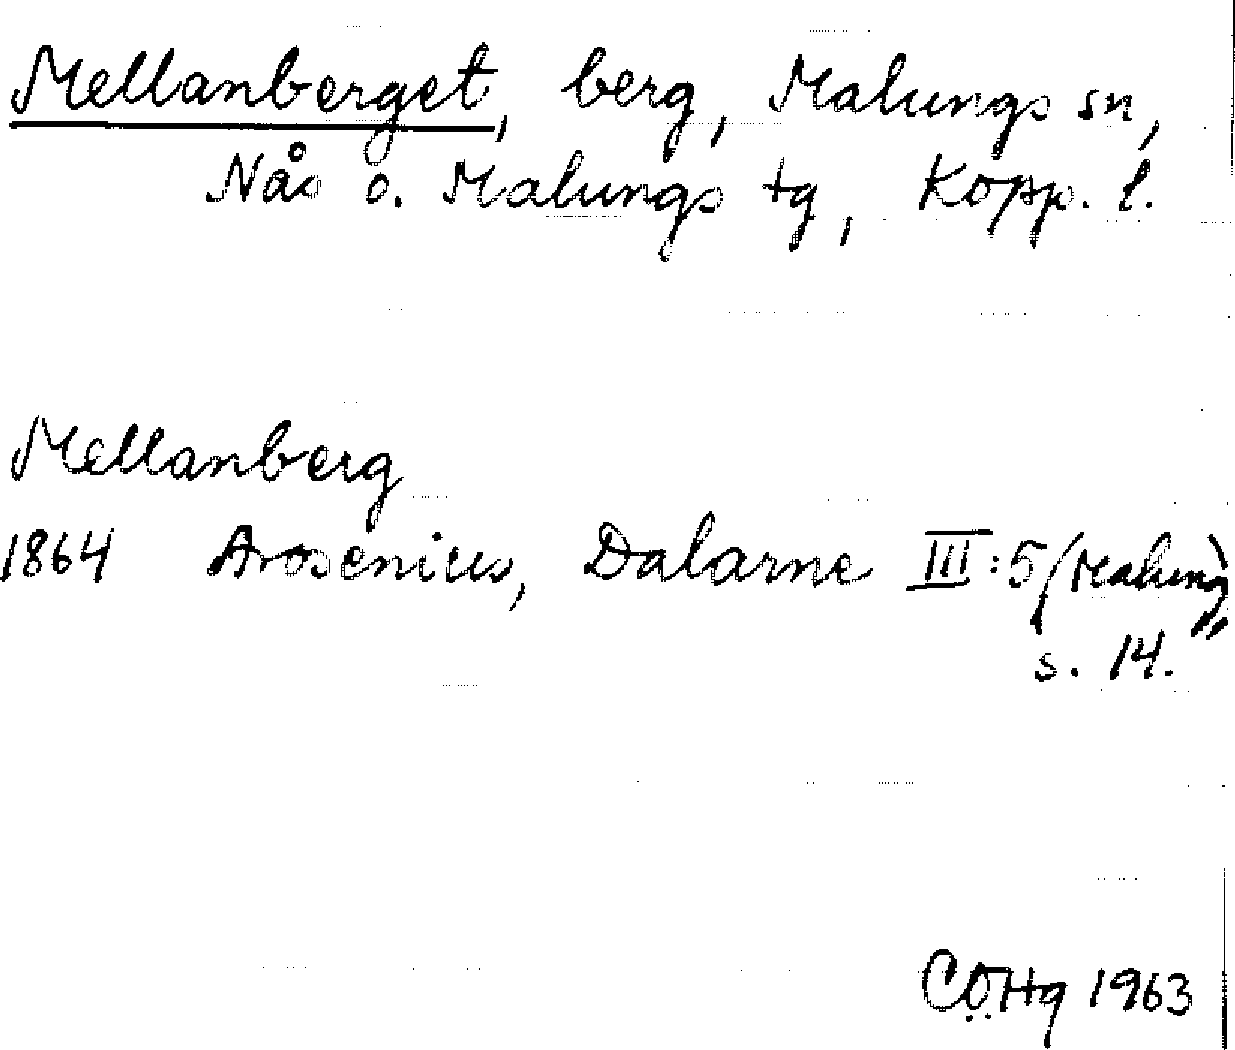 Mellanberget, berg, Malungs sn,
Nås o. Malungs tg, Kopp. l.
Mellanberg
1864 Arosenius, Dalarne III:5 (Malung),
s. 14.
CÖHg 1963